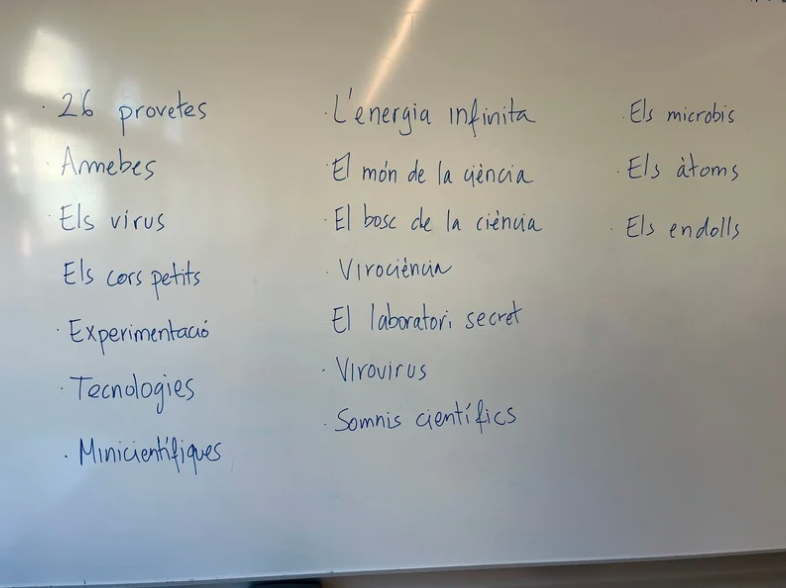 · 26 provetes
Amebes
· Els virus
Els cors petits
· Experimentació
· Tecnologies
· Minicientífiques
· L'energia infinita
· El món de la ciència
· El bosc de la ciència
· Virociència
El laboratori secret
· Virovirus
· Somnis científics
· Els microbis
· Els àtoms
· Els endolls